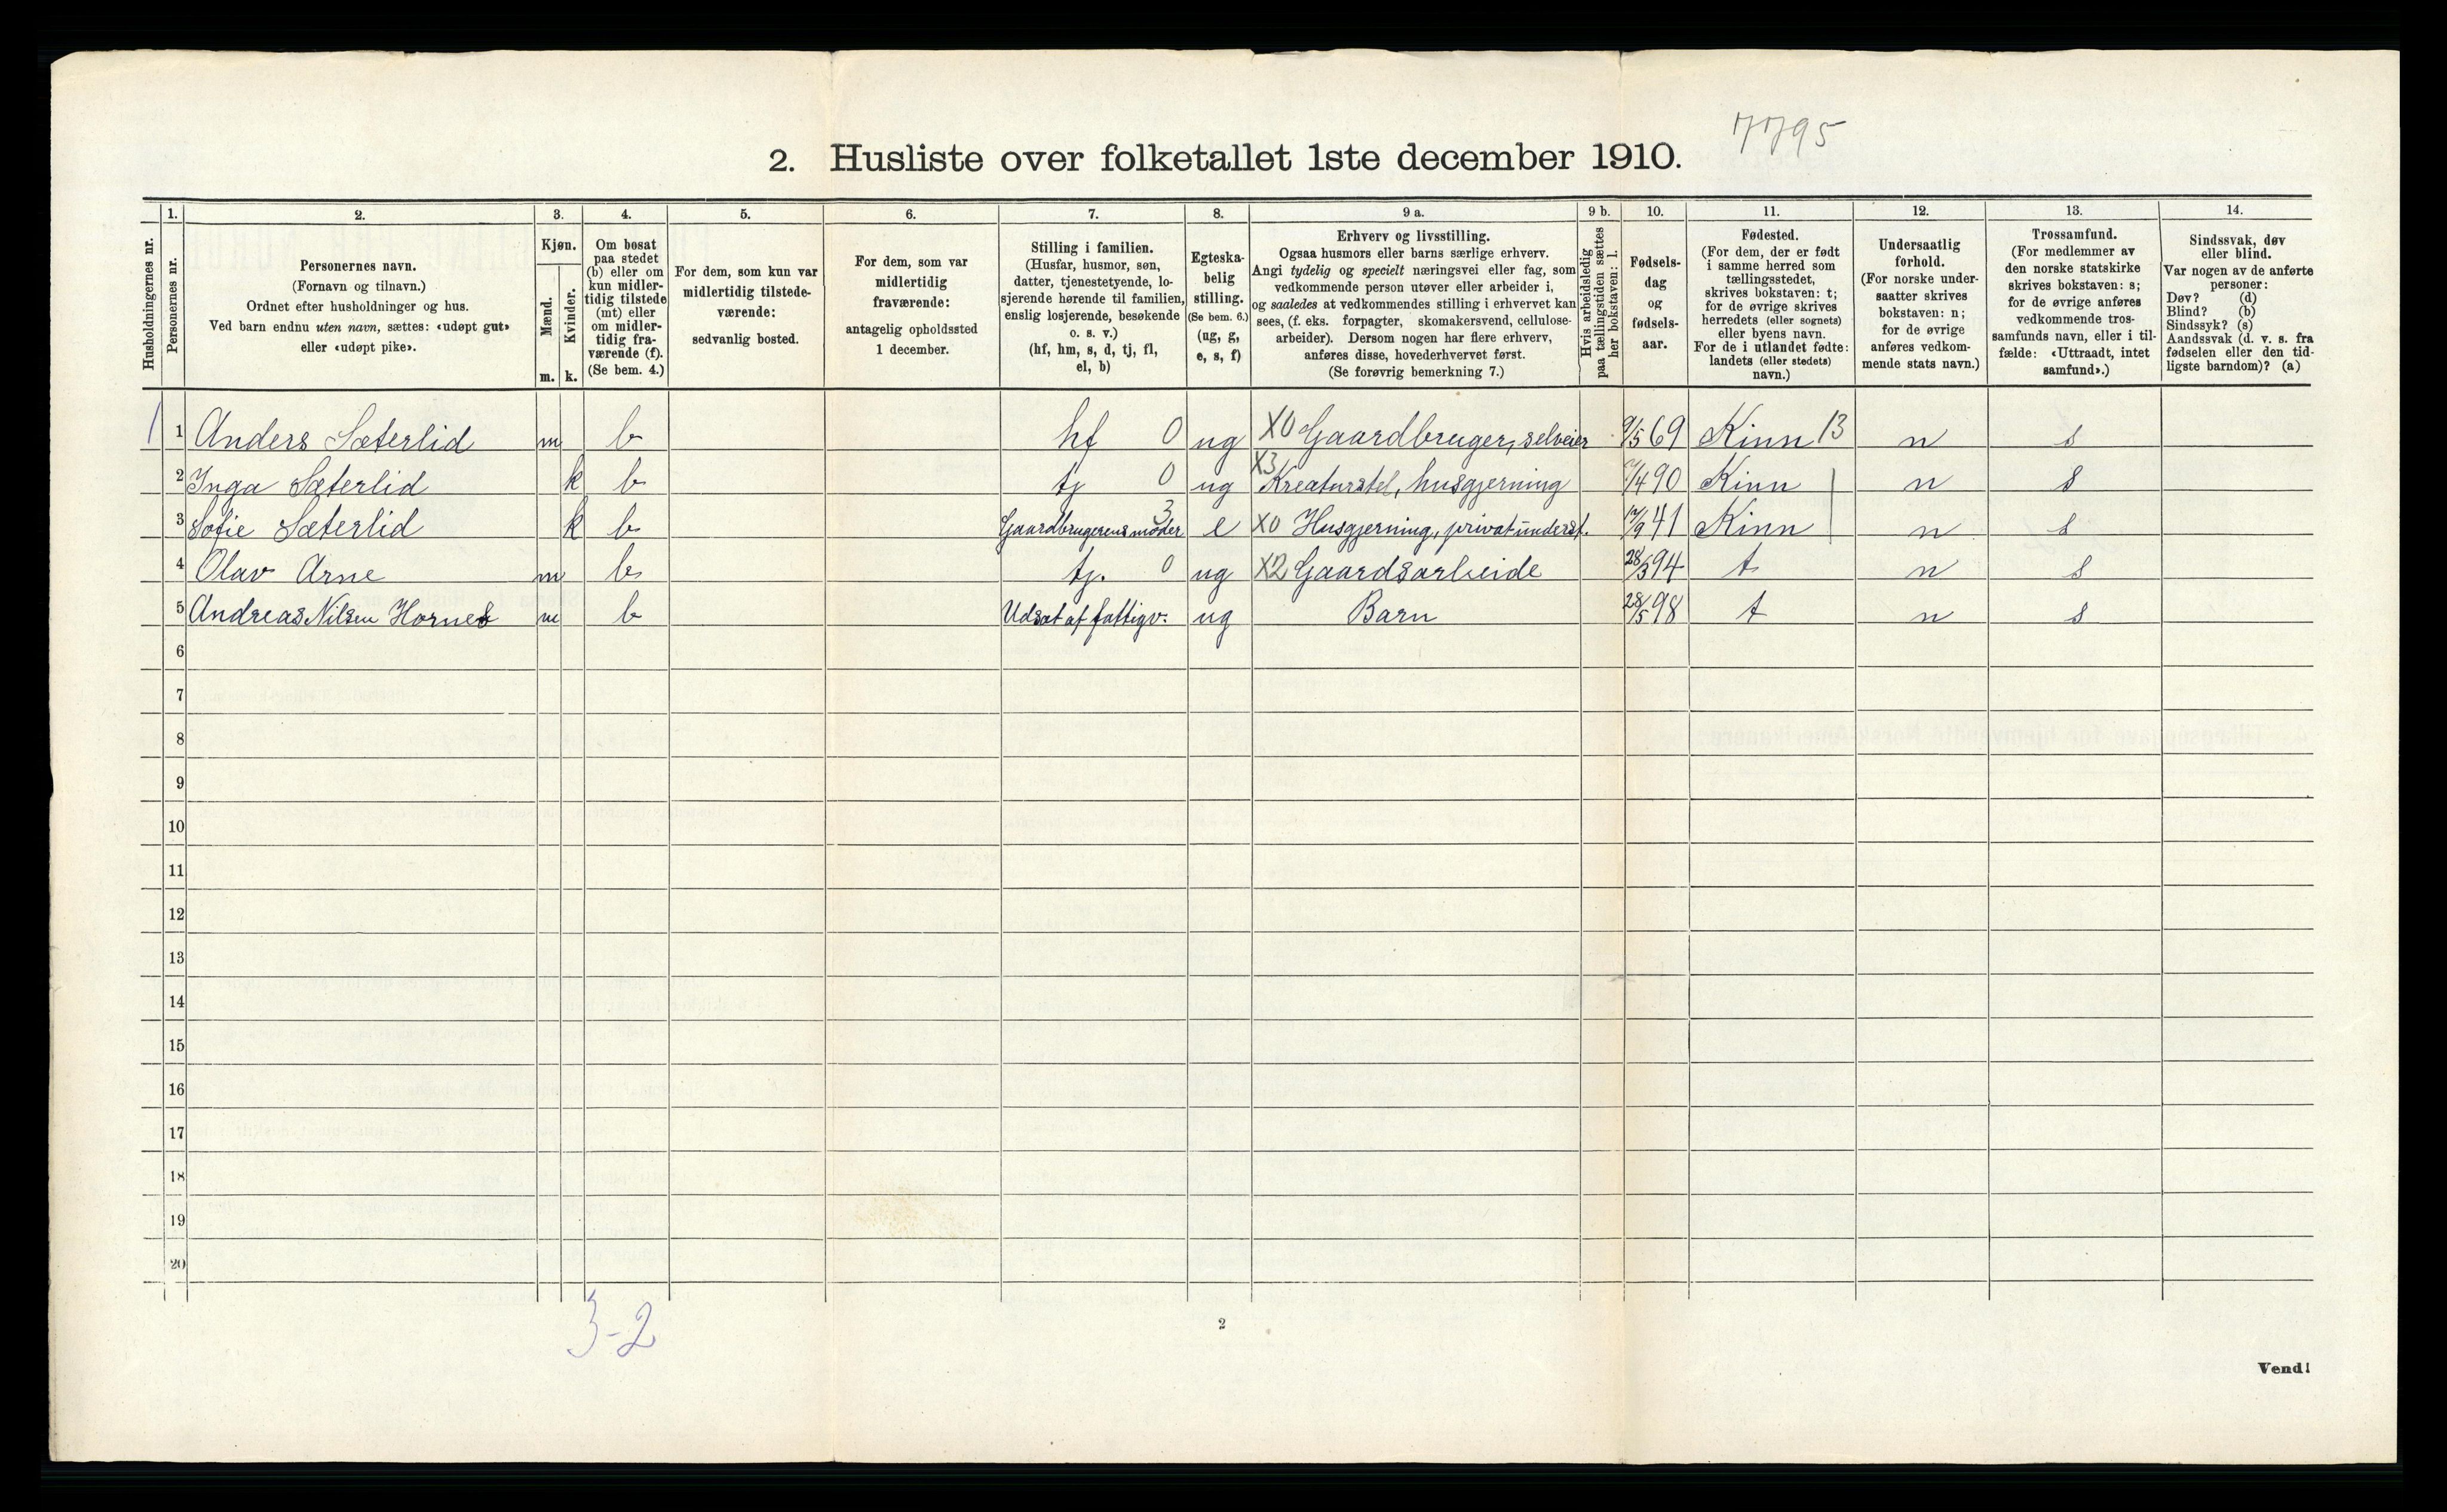 7795
2. Husliste over folketallet 1ste december 1910.
Husholdningernes nr.
1. Personernes nr.
2. Personernes navn. (Fornavn og tilnavn.) Ordnet efter husholdninger og hus. Ved barn endnu uten navn, sættes: «udøpt gut» eller «udøpt pike».
3. Kjøn. Mænd. m. Kvinder. k.
4. Om bosat paa stedet (b) eller om kun midlertidig tilstede (mt) eller om midlertidig fraværende (f). (Se bem. 4.)
5. For dem, som kun var midlertidig tilstedeværende: sedvanlig bosted.
6. For dem, som var midlertidig fraværende: antagelig opholdssted 1 december.
7. Stilling i familien. (Husfar, husmor, søn, datter, tjenestetyende, losjerende hørende til familien, enslig losjerende, besøkende o. s. v.) (hf, hm, s, d, tj, fl, el, b)
8. Egteskabelig stilling. (Se bem. 6.) (ug, g, e, s, f)
9 a. Erhverv og livsstilling. Ogsaa husmors eller barns særlige erhverv. Angi tydelig og specielt næringsvei eller fag, som vedkommende person utøver eller arbeider i, og saaledes at vedkommendes stilling i erhvervet kan sees, (f. eks. forpagter, skomakersvend, cellulosearbeider). Dersom nogen har flere erhverv, anføres disse, hovederhvervet først. (Se forøvrig bemerkning 7.)
9 b. Hvis arbeidsledig paa tællingstiden sættes her bokstaven: l.
10. Fødselsdag og fødselsaar.
11. Fødested. (For dem, der er født i samme herred som tællingsstedet, skrives bokstaven: t; for de øvrige skrives herredets (eller sognets) eller byens navn. For de i utlandet fødte: landets (eller stedets) navn.)
12. Undersaatlig forhold. (For norske undersaatter skrives bokstaven: n; for de øvrige anføres vedkommende stats navn.)
13. Trossamfund. (For medlemmer av den norske statskirke skrives bokstaven: s; for de øvrige anføres vedkommende trossamfunds navn, eller i tilfælde: «Uttraadt, intet samfund».)
14. Sindssvak, døv eller blind. Var nogen av de anførte personer: Døv? (d) Blind? (b) Sindssyk? (s) Aandssvak (d. v. s. fra fødselen eller den tidligste barndom)? (a)
1 1 Anders Sæterlid m b hf 0 ug X0 Gaardbruger, selveier 9/5 69 Kinn 13 n s
2 Inga Sæterlid k b tj 0 ug X3 Kreaturstel, husgjerning /4 90 Kinn n s
3 Sofie Sæterlid k b Gaardbrugerens moder 3 e X0 Husgjerning, privat underst. 17/9 41 Kinn n s
4 Olav Arne m b tj. 0 ug X2 Gaardsarbeide 28/3 94 t n s
5 Andreas Nilsen Hornes m b Udsat af fattigv. ug Barn 28/5 98 t n s
6
7
8
9
10
11
12
13
14
15
16
17
18
19
20
3-2
2
Vend!